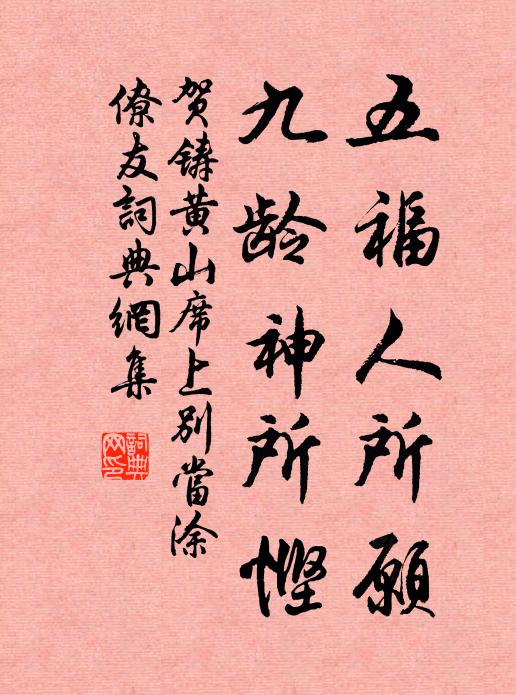 五福人所愿
九龄神所悭
贺铸黄山席上别當涂
僚友詞典網集
詞典
网印